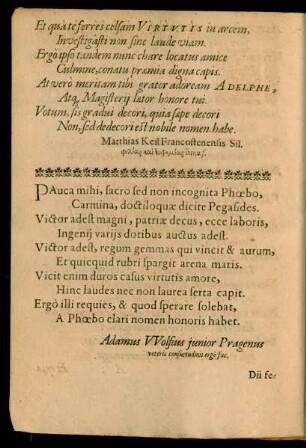 Et quà te ferres celsam VIRTVTIS in arcem,
Investigásti non sine laude viam.
Ergò ipso tandem nunc chare locatus amice
Culmine, conatu præmia digna capis.
At verò meritam tibi grator adoream ADELPHE,
Atq; Magisterij lætor honore tui.
Votum, sis gradui decori, quia sæpe decori
Non, sed dedecori est nobile nomen habe.
Matthias Keil Francostenensis Sil.
PAuca mihi, sacro sed non incognita Phœbo,
Carmina, doctiloquæ dicite Pegasides.
Victor adest magni, patriæ decus, ecce laboris,
Ingenij varijs dotibus auctus adest.
Victor adest, regum gemmas qui vincit & aurum,
Et quicquid rubri spargit arena maris.
Vicit enim duros casus virtutis amore,
Hinc laudes nec non laurea serta capit.
Ergò illi requies, & quod sperare solebat,
A Phœbo clari nomen honoris habet.
Adamus VVolfius junior Pragenus
veteris consuetudinis ergò fac.
Dii fe-